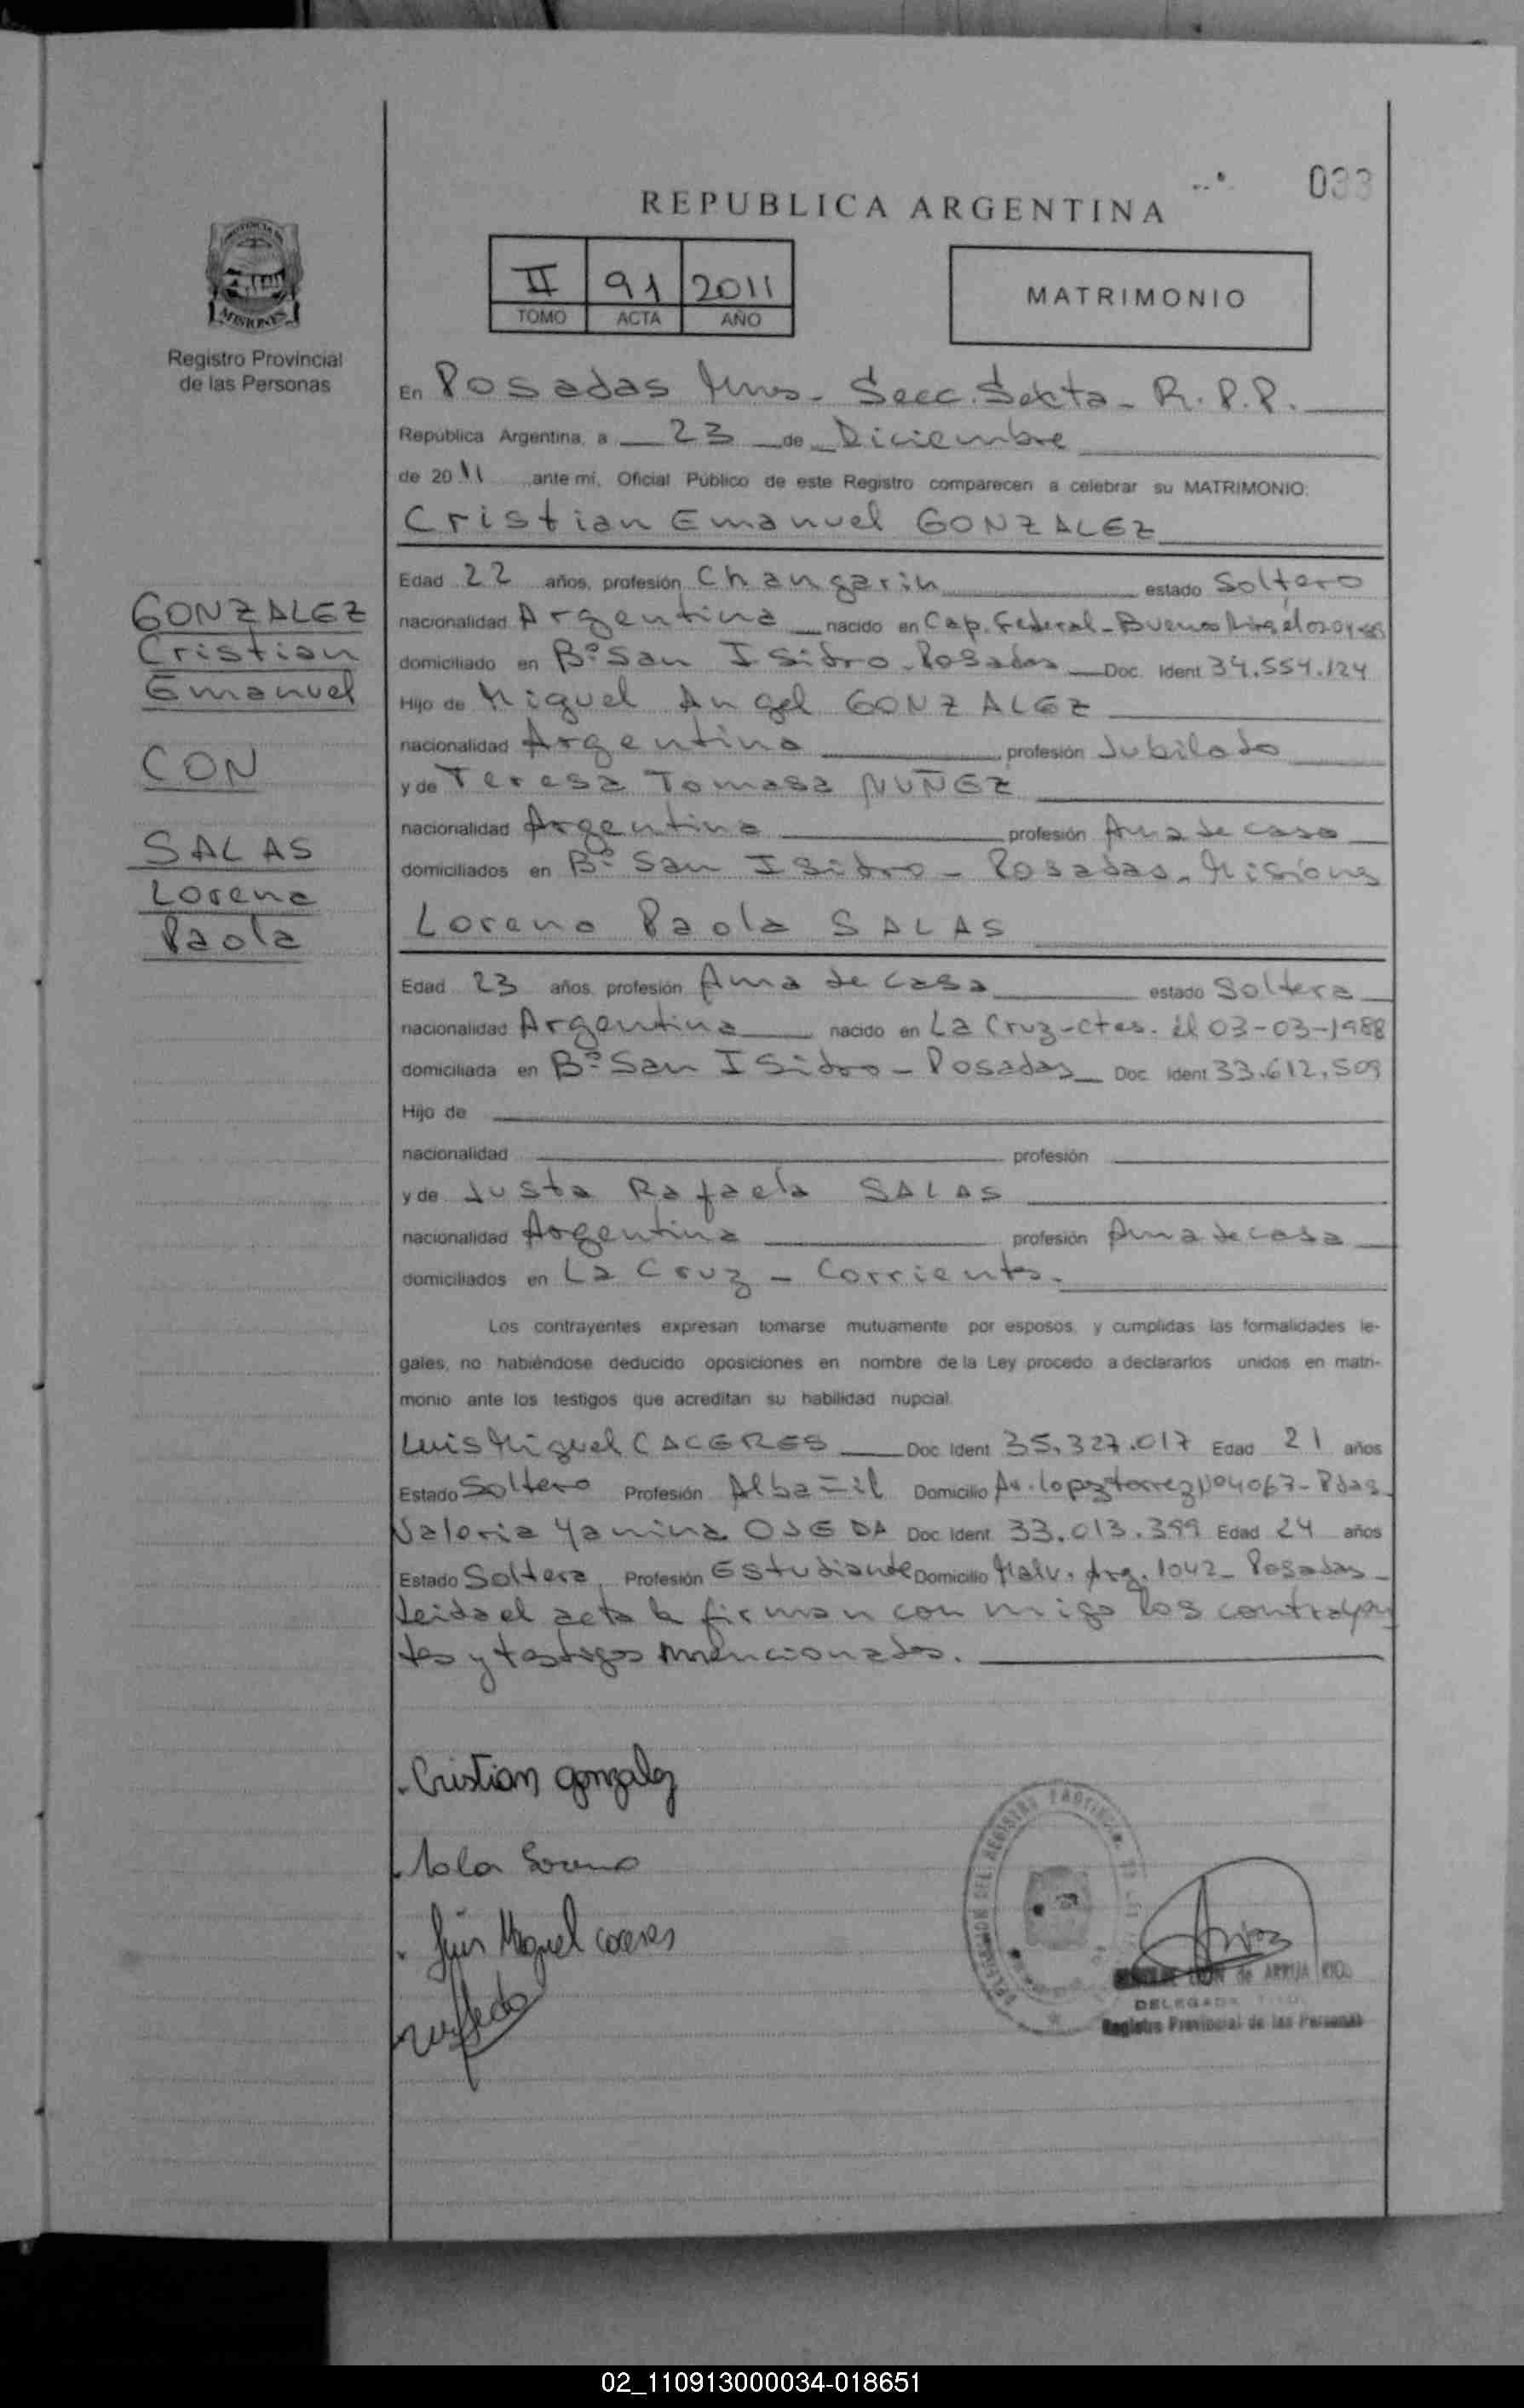 033
REPUBLICA ARGENTINA
II 91 2011
TOMO ACTA AÑO
MATRIMONIO
PROVINCIA DE
MISIONES
Registro Provincial
de las Personas
En Posadas Mnes- Secc. Sexta- R.P.P.
República Argentina, a 23 de Diciembre
de 2011 ante mí, Oficial Público de este Registro comparecen a celebrar su MATRIMONIO:
Cristian Emanuel GONZALEZ
Edad 22 años, profesión Changarin estado Soltero
nacionalidad Argentina nacido en Cap. Federal-Buenos Aires el
domiciliado en Bº San Isidro-Posadas Doc. Ident 34.554.124
Hijo de Miguel Angel GONZALEZ
nacionalidad Argentina profesión Jubilado
y de Teresa Tomasa NUÑEZ
nacionalidad Argentina profesión Ama de casa
domiciliados en Bº San Isidro - Posadas- Misiones
Lorena Paola SALAS
Edad 23 años, profesión Ama de casa estado Soltera
nacionalidad Argentina nacido en La Cruz-Ctes. el 03-03-1988
domiciliada en Bº San Isidro - Posadas Doc. Ident 33.612.509
Hijo de
nacionalidad profesión
y de Justa Rafaela SALAS
nacionalidad Argentina profesión Ama de casa
domiciliados en La Cruz - Corrientes.
Los contrayentes expresan tomarse mutuamente por esposos, y cumplidas las formalidades le-
gales, no habiéndose deducido oposiciones en nombre de la Ley procedo a declararlos unidos en matri-
monio ante los testigos que acreditan su habilidad nupcial.
Luis Miguel CACERES Doc. Ident 35.327.017 Edad 21 años
Estado Soltero Profesión Albañil Domicilio Av. Lopez torrez Nº 4067- Pdas-
Valeria Yanina OJEDA Doc. Ident. 33.013.399 Edad 24 años
Estado Soltera Profesión Estudiante Domicilio Malv. Arg. 1042- Posadas-
Leida el acta la firman con migo los contrayen
tes y testigos mencionados.
GONZALEZ
Cristian
Emanuel
CON
SALAS
Lorena
Paola
Cristian Gonzalez
Luis Miguel Caceres
DELEGACION DEL REGISTRO PROVINCIAL
de ARRUA
DELEGADA
Registro Provincial de las Personas
02_110913000034-018651